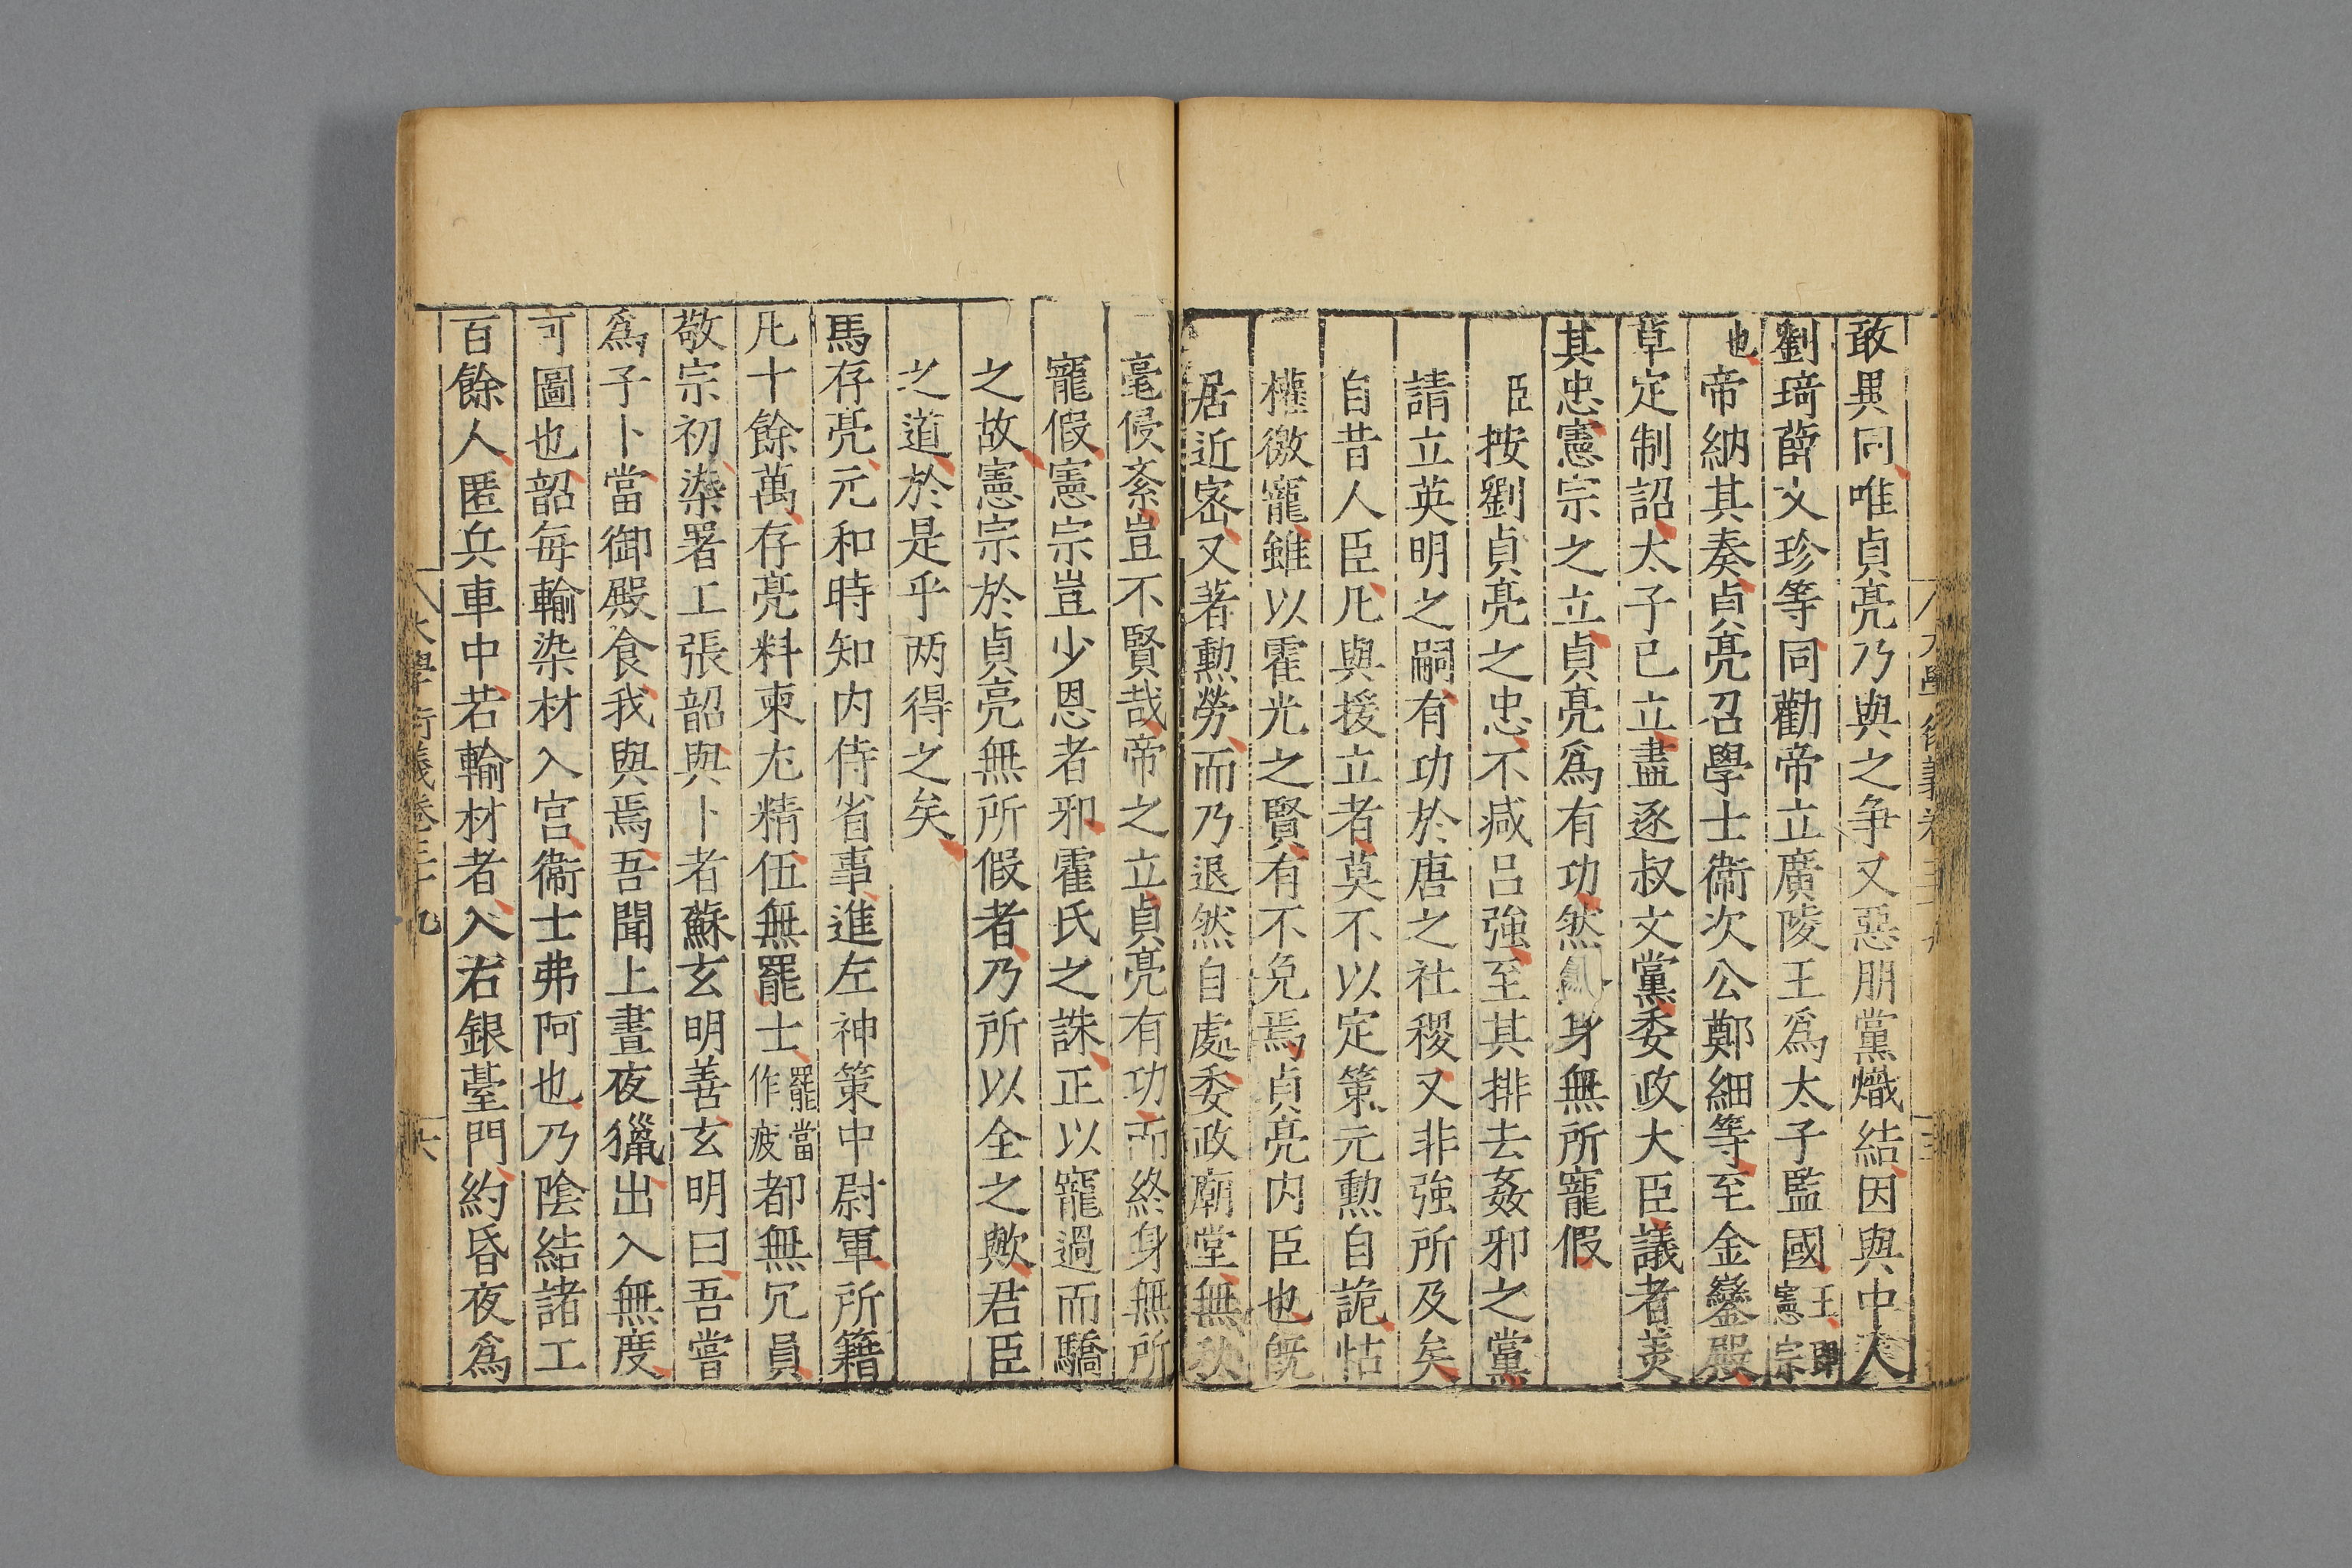 敢異同唯貞亮乃與之争又惡朋黨熾結因與中人
劉琦薛文珍等同勸帝立廣陵王爲太子監國王即憲宗
也帝納其奏貞亮召學士衞次公鄭細等至金鑾殿
草定制詔太子已立盡逐叔文黨委政大臣議者美
其忠憲宗之立貞亮爲有功然身無所寵假
臣按劉貞亮之忠不减呂強至其排去姦邪之黨
請立英明之嗣有功於唐之社稷又非強所及矣
自昔人臣凡與援立者莫不以定策元勲自詭怙
權徼寵雖以霍光之賢有不免焉貞亮内臣也既
居近宻又著勲勞而乃退然自處委政廟堂無秋
毫侵紊豈不賢哉帝之立貞亮有功而終身無所
寵假憲宗豈少恩者邪霍氏之誅正以寵過而驕
之故憲宗於貞亮無所假者乃所以全之歟君臣
之道於是乎两得之矣
馬存亮元和時知内侍省事進左神策中尉軍所籍
凡十餘萬存亮料柬尤精伍無罷士罷當作疲都無冗員
敬宗初染署工張韶與卜者蘇玄明善玄明曰吾嘗
爲子卜當御殿食我與焉吾聞上晝夜獵出入無度
可圖也韶每輸染材入宫衞士弗呵也乃陰結諸工
百餘人匿兵車中若輸材者入右銀臺門約昏夜爲
大學衍義卷三十九